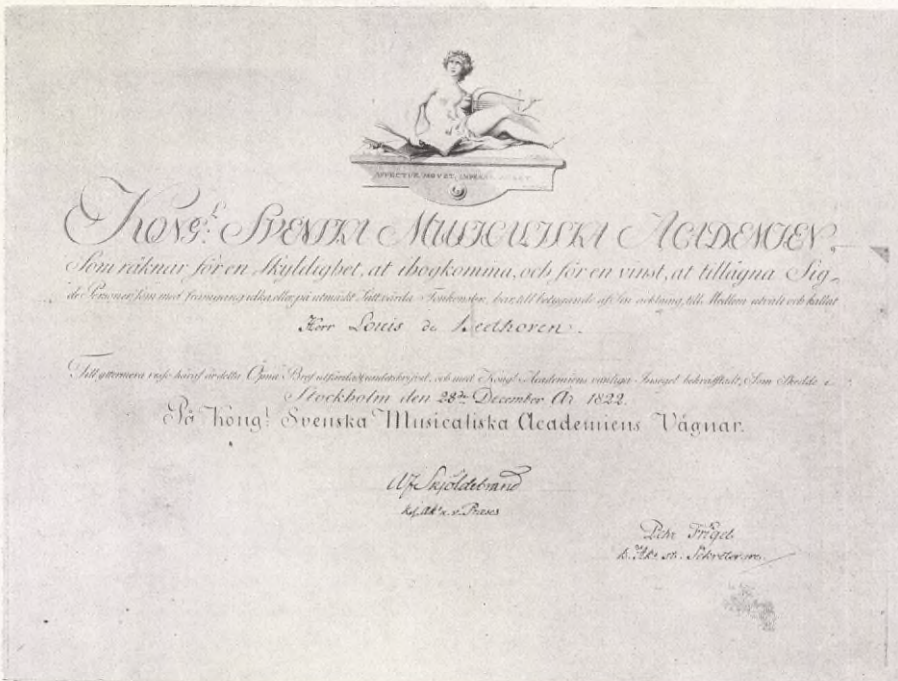 AFFECTUS MOVET
KONGL. SVENSKA MUSICALISKA ACADEMIEN.
Som räknar för en skyldighet, at ihogkomma, och för en vinst, at tillägna Sig,
de Personer som med framgång idka, eller på utmärkt Sätt vårda Tonkonsten, har till betygande af Sin acktning, till Medlem utvalt och kallat
Herr Louis de Beethoven.
Till yttermera visso häraf är detta Öpna Bref utfärdadt, underskrifvet, och med Kongl. Academiens vanliga Insegel bekräfftadt, Som Skedde i
Stockholm den 28de December År 1822.
På Kongl. Svenska Musicaliska Academiens Vägnar.
Skjöldebrand
Præses
Pehr Frigel
K. Ak. st. Sekreterare.